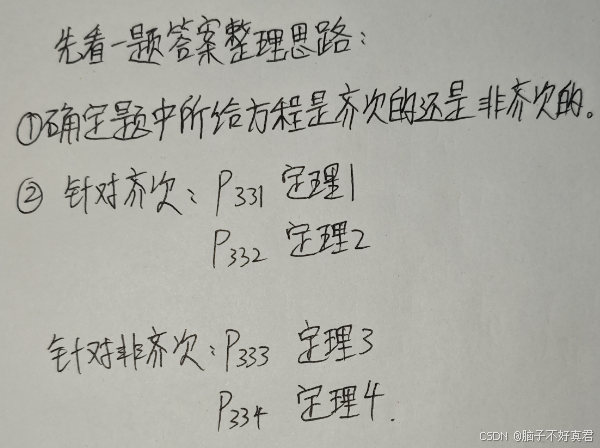 先看一题答案整理思路：
①确定题中所给方程是齐次的还是非齐次的。
② 针对齐次：P331 定理1
P332 定理2
针对非齐次：P333 定理3
P334 定理4.
CSDN @脑子不好真君